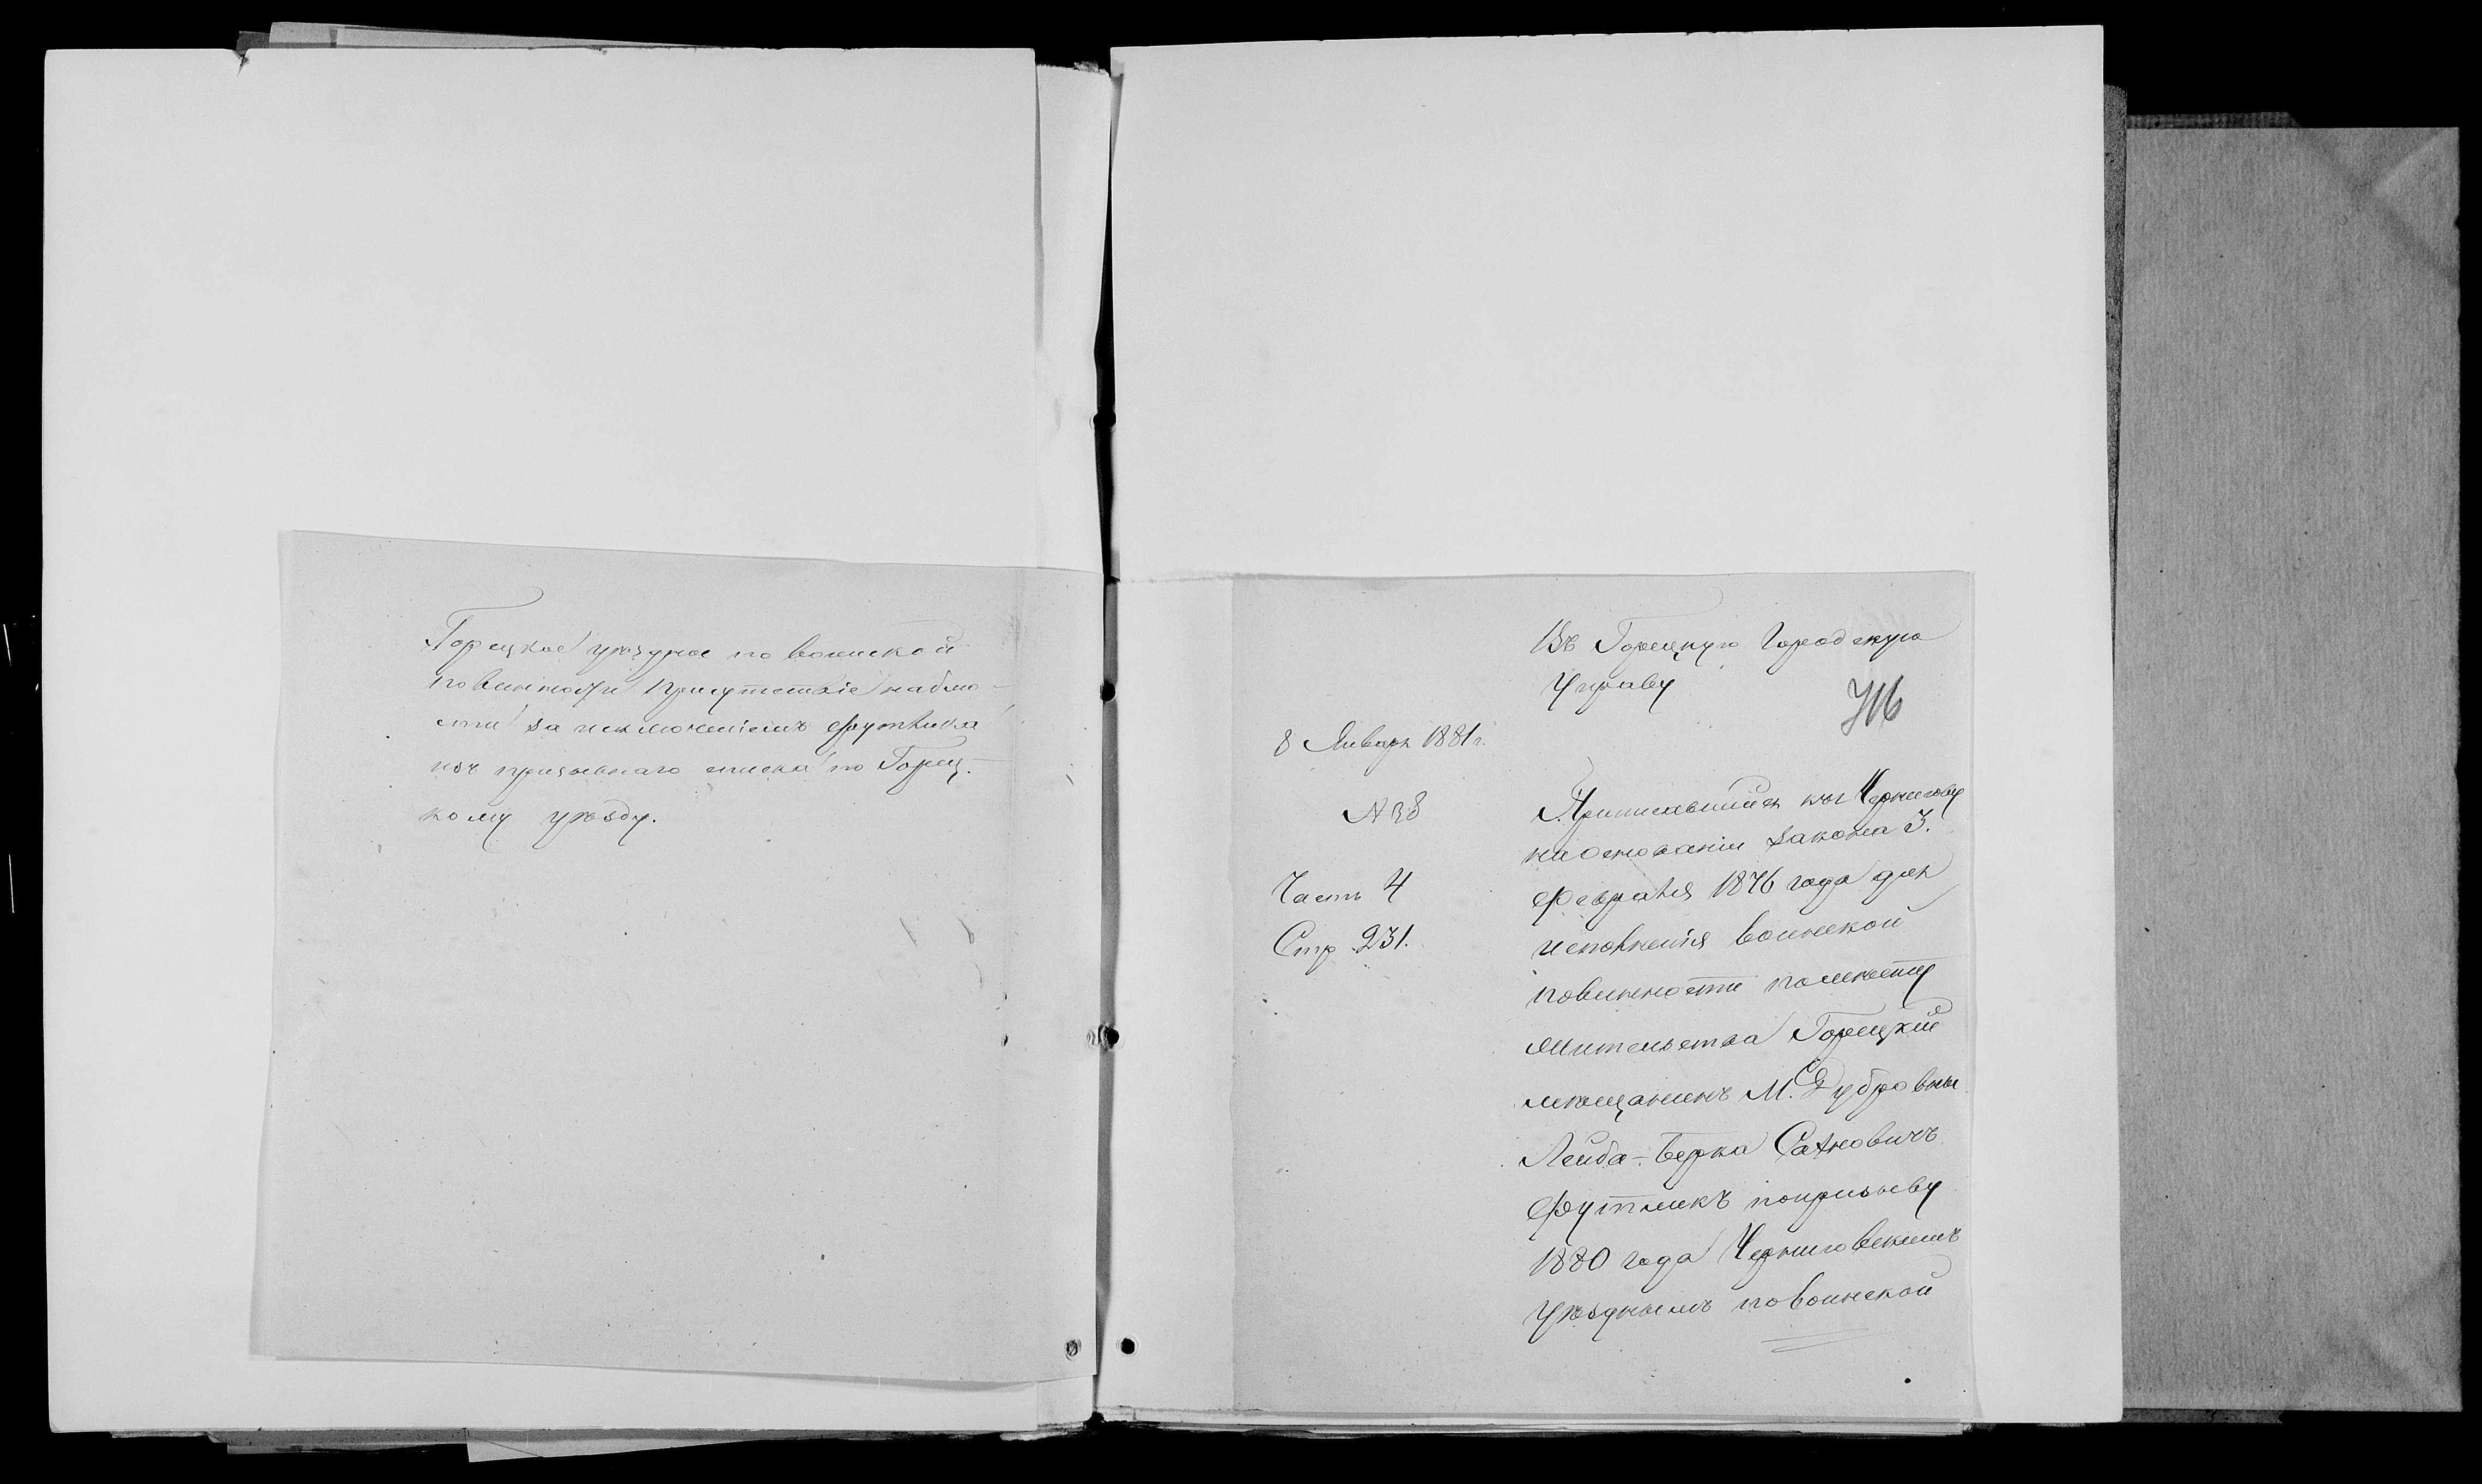 Горецкое уѣздное по воинской
повинности Присутствіе наблю-
сти за исключеніемъ Футлика
изъ призывнаго списка по Горец-
кому уѣзду.
Въ Горецкую Городскую
Управу
8 Января 1881 г.
№ 38
Часть 4
Стр 231.
Приписавшійся къ г Чернигову
на основаніи закона 3.
Февраля 1876 года для
исполненія воинской
повинности по мѣсту
жительства Горецкій
мѣщанинъ М. Дубровны
Лейба-Берка
Футликъ по призыву
1880 года Черниговскимъ
Уѣзднымъ по воинской